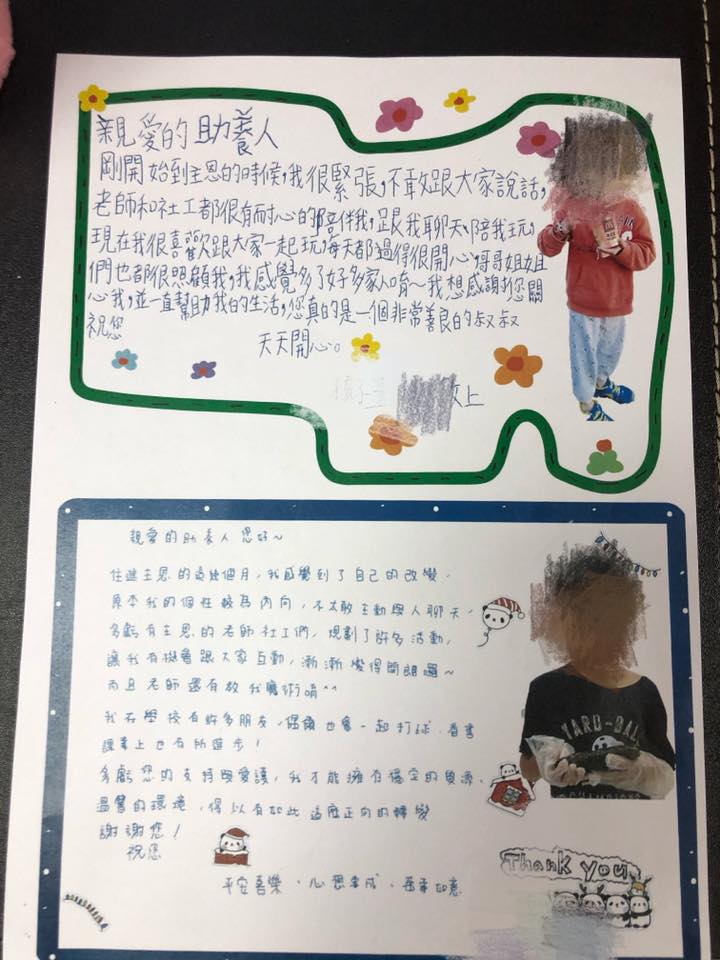 親愛的助養人
剛開始到主恩的時候，我很緊張，不敢跟大家說話，
老師和社工都很有耐心的陪伴我，跟我聊天、陪我玩，
現在我很喜歡跟大家一起玩，每天都過得很開心，哥哥姐姐
們也都很照顧我，我感覺多了好多家人唷～我想感謝您關
心我，並一直幫助我的生活，您真的是一個非常善良的叔叔
祝您
天天開心。
敬上
親愛的助養人您好~
住進主恩的這幾個月，我感覺到了自己的改變，
原本我的個性較為內向，不太敢主動與人聊天，
多虧有主恩的老師社工們，規劃了許多活動，
讓我有機會跟大家互動，漸漸變得開朗囉~
而且老師還有教我魔術唷^^
我在學校有許多朋友，偶爾也會一起打球、看書
課業上也有所進步！
多虧您的支持與愛護，我才能擁有穩定的資源、
溫馨的環境，得以有如此這麼正向的轉變
謝謝您！
祝您
平安喜樂、心想事成、萬事如意
YARD-BAL
Thank you